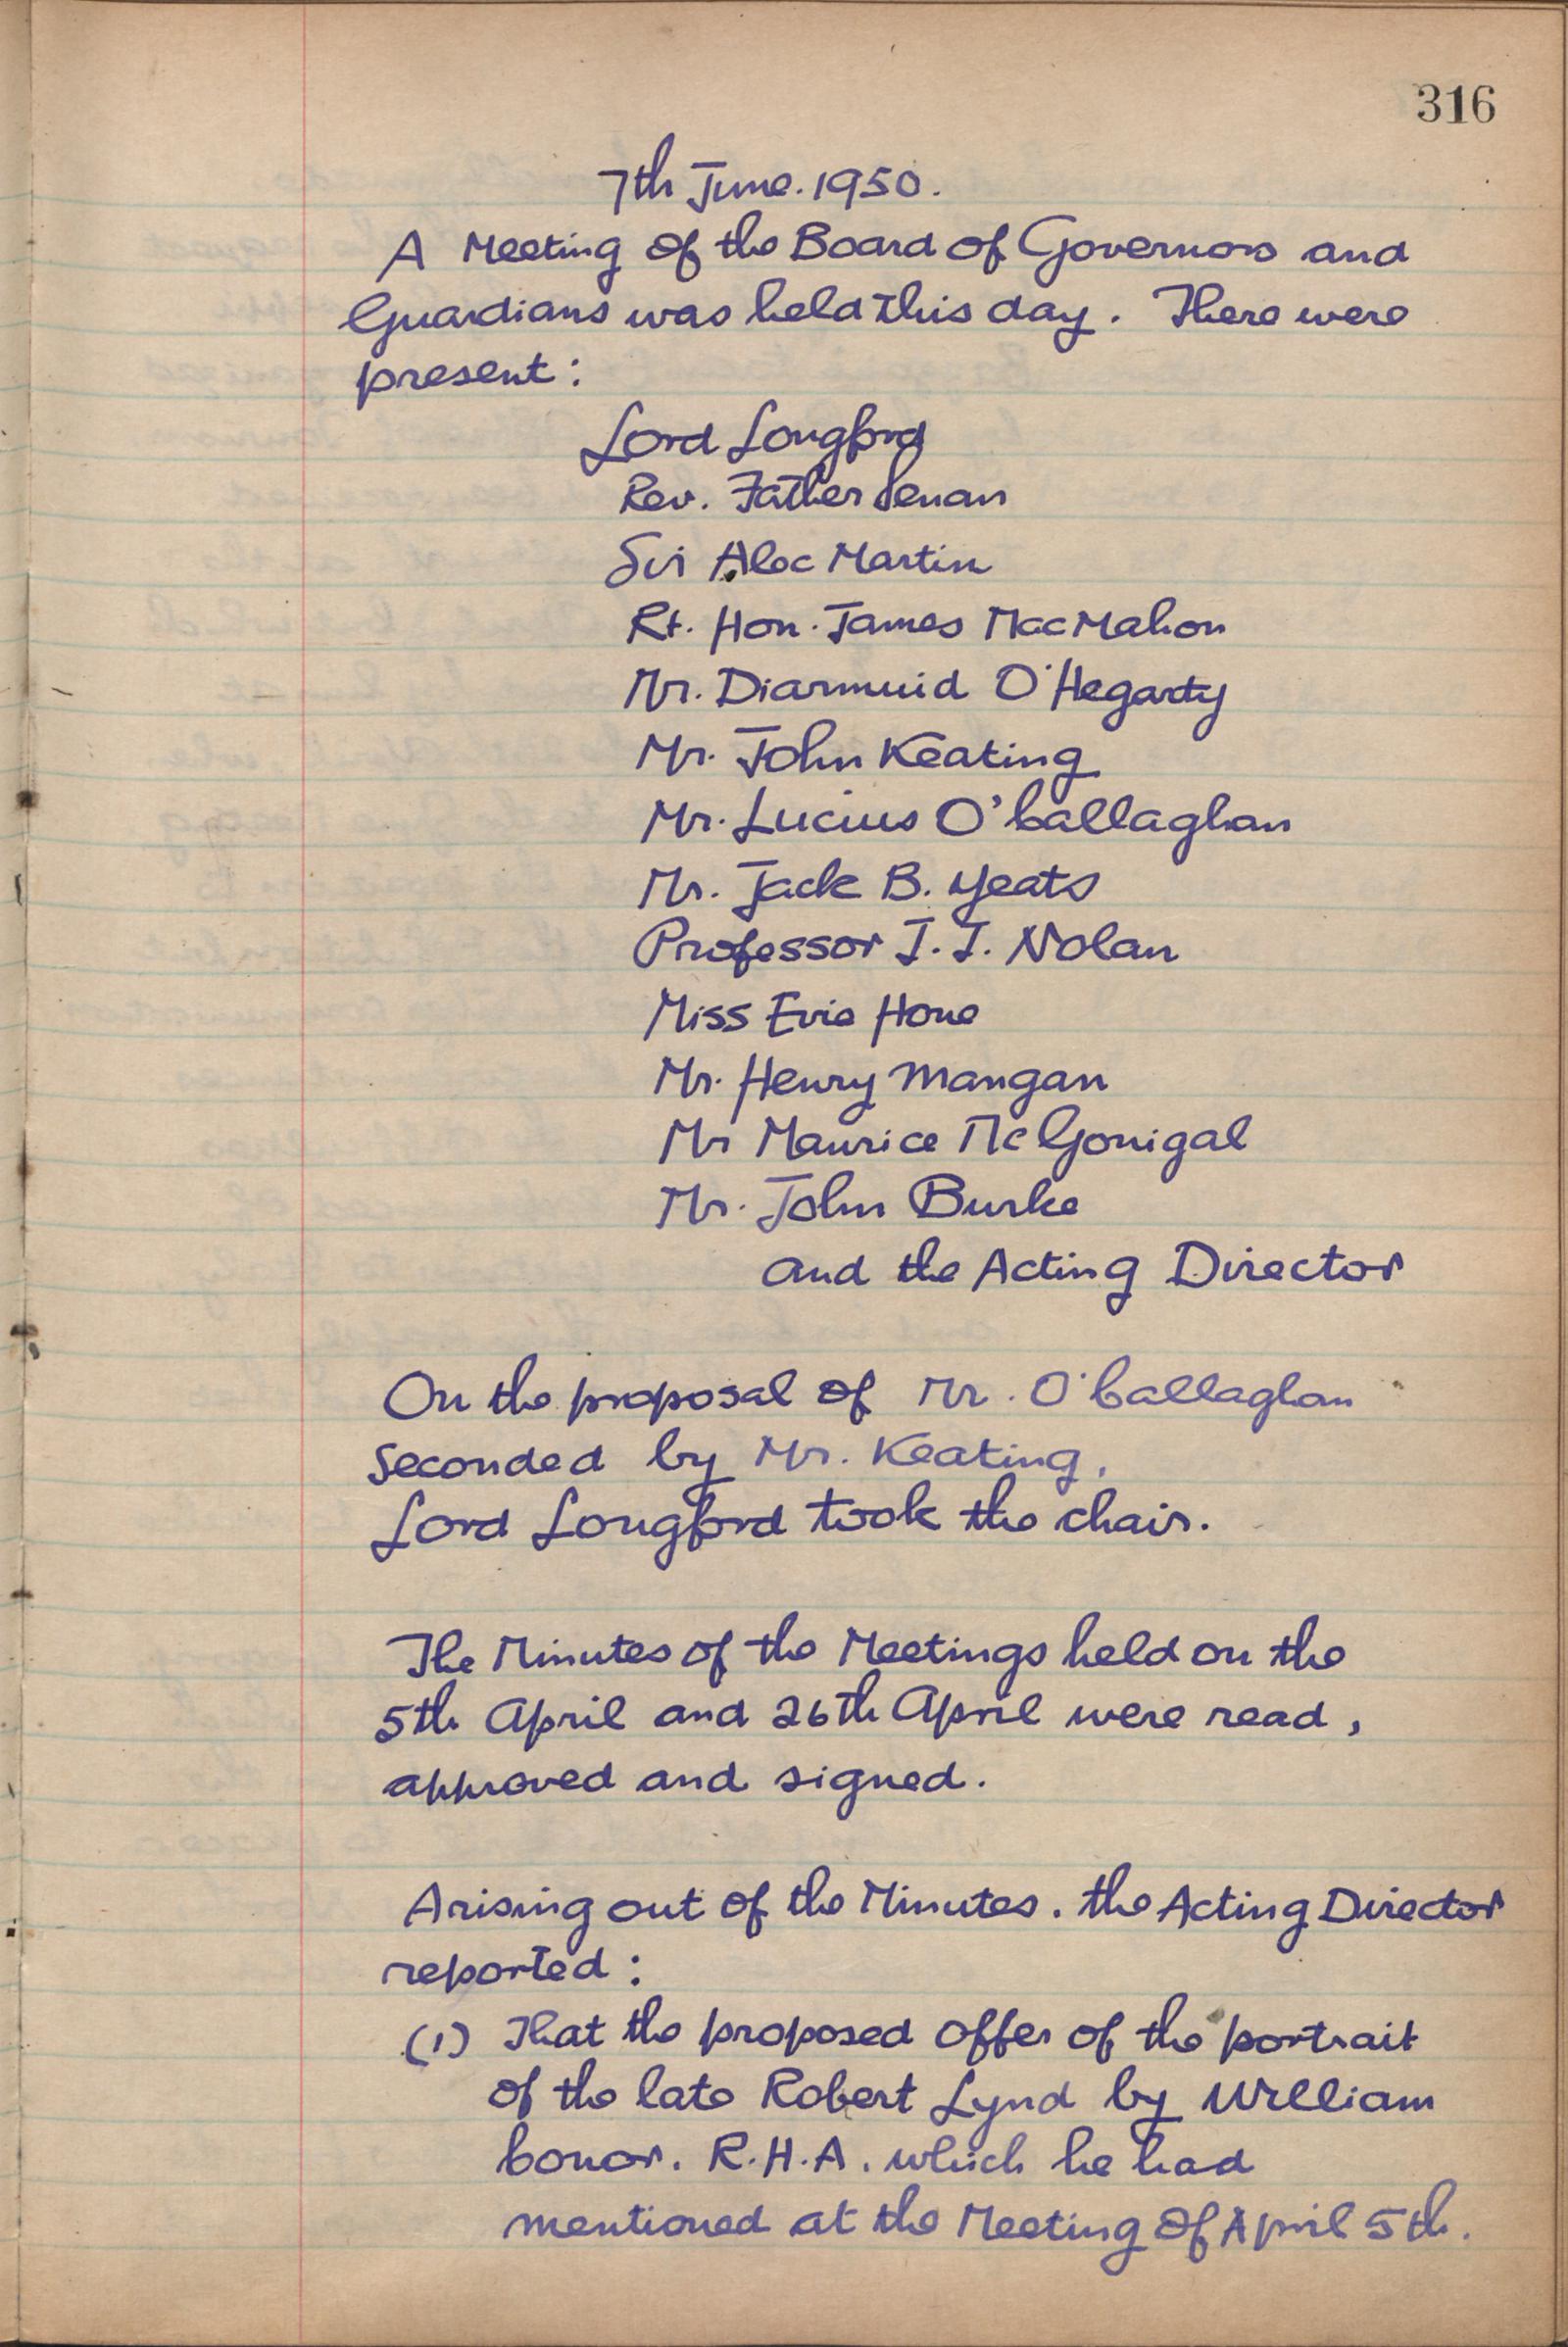 316
7th June. 1950.
A Meeting of the Board of Governors and
Guardians was held this day. There were
present:
Lord Longford
Rev. Father Senan
Sir Alec Martin
Rt. Hon. James MacMahon
Mr. Diarmuid O'Hegarty
Mr. John Keating
Mr. Lucius O'Callaghan
Mr. Jack B. Yeats
Professor J. J. Nolan
Miss Evie Hone
Mr. Henry Mangan
Mr Maurice McGonigal
Mr. John Burke
and the Acting Director
On the proposal of Mr. O'Callaghan
seconded by Mr. Keating,
Lord Longford took the chair.
The Minutes of the Meetings held on the
5th April and 26th April were read,
approved and signed.
Arising out of the Minutes. the Acting Director
reported:
(1) That the proposed offer of the portrait
of the late Robert Lynd by William
Conor. R.H.A. which he had
mentioned at the Meeting of April 5th.